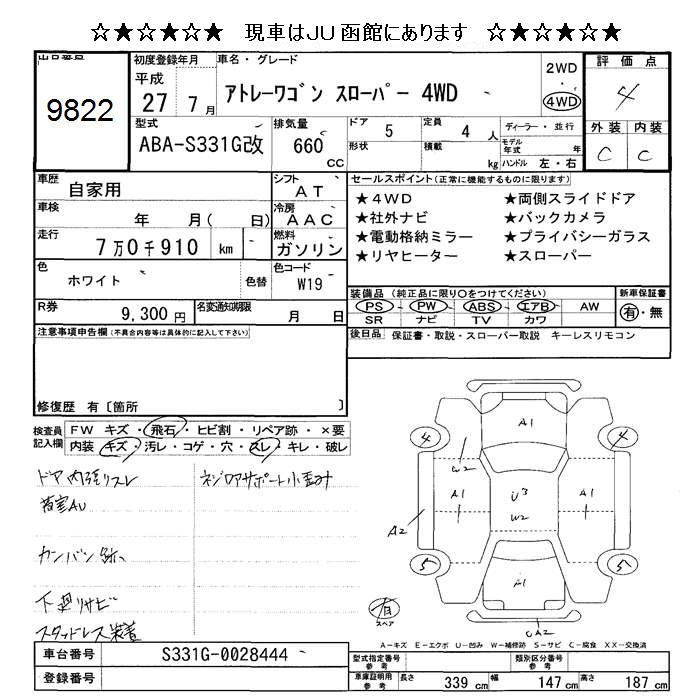 ☆★☆★☆★ 現車はJU函館にあります ☆★☆★☆★
出品番号
9822
初度登録年月
平成
27 7月
車名・グレード
アトレーワゴン スローパー 4WD
2WD
・
4WD
評価点
4
外装 内装
C C
型式
ABA-S331G改
排気量
660
CC
ドア
5
定員
4 人
形状
積載
kg
ディーラー・並行
モデル年式 年
ハンドル 左・右
車歴
自家用
シフト
AT
車検
年 月( 日)
冷房
AAC
走行
7万0千910 km
燃料
ガソリン
色
ホワイト
色替
色コード
W19
R券
9,300円
名変通知期限
月 日
セールスポイント(正常に機能するものに限ります)
★4WD ★両側スライドドア
★社外ナビ ★バックカメラ
★電動格納ミラー ★プライバシーガラス
★リヤヒーター ★スローパー
装備品(純正品に限り○をつけてください)
PS PW ABS エアB AW
SR ナビ TV カワ
新車保証書
有・無
後日品 保証書・取説・スローパー取説 キーレスリモコン
注意事項申告欄(不具合内容等は具体的に記入して下さい)
修復歴 有〔箇所 〕
検査員記入欄
FW キズ・飛石・ヒビ割・リペア跡・×要
内装 キズ・汚レ・コゲ・穴・スレ・キレ・破レ
ドア内張リスレ
荷室AU
カンバン跡
下廻リサビ
スタッドレス装着
A1
4 4
W2
A1 U3 A1
W2
A2
5 5
A1
有
スペア
A-キズ E-エクボ U-凹み W-補修跡 S-サビ C-腐食 XX-交換済
車台番号 S331G-0028444
登録番号
型式指定番号
参考
類別区分番号
参考
車庫証明用
参考
長さ 339 cm 幅 147 cm 高さ 187 cm